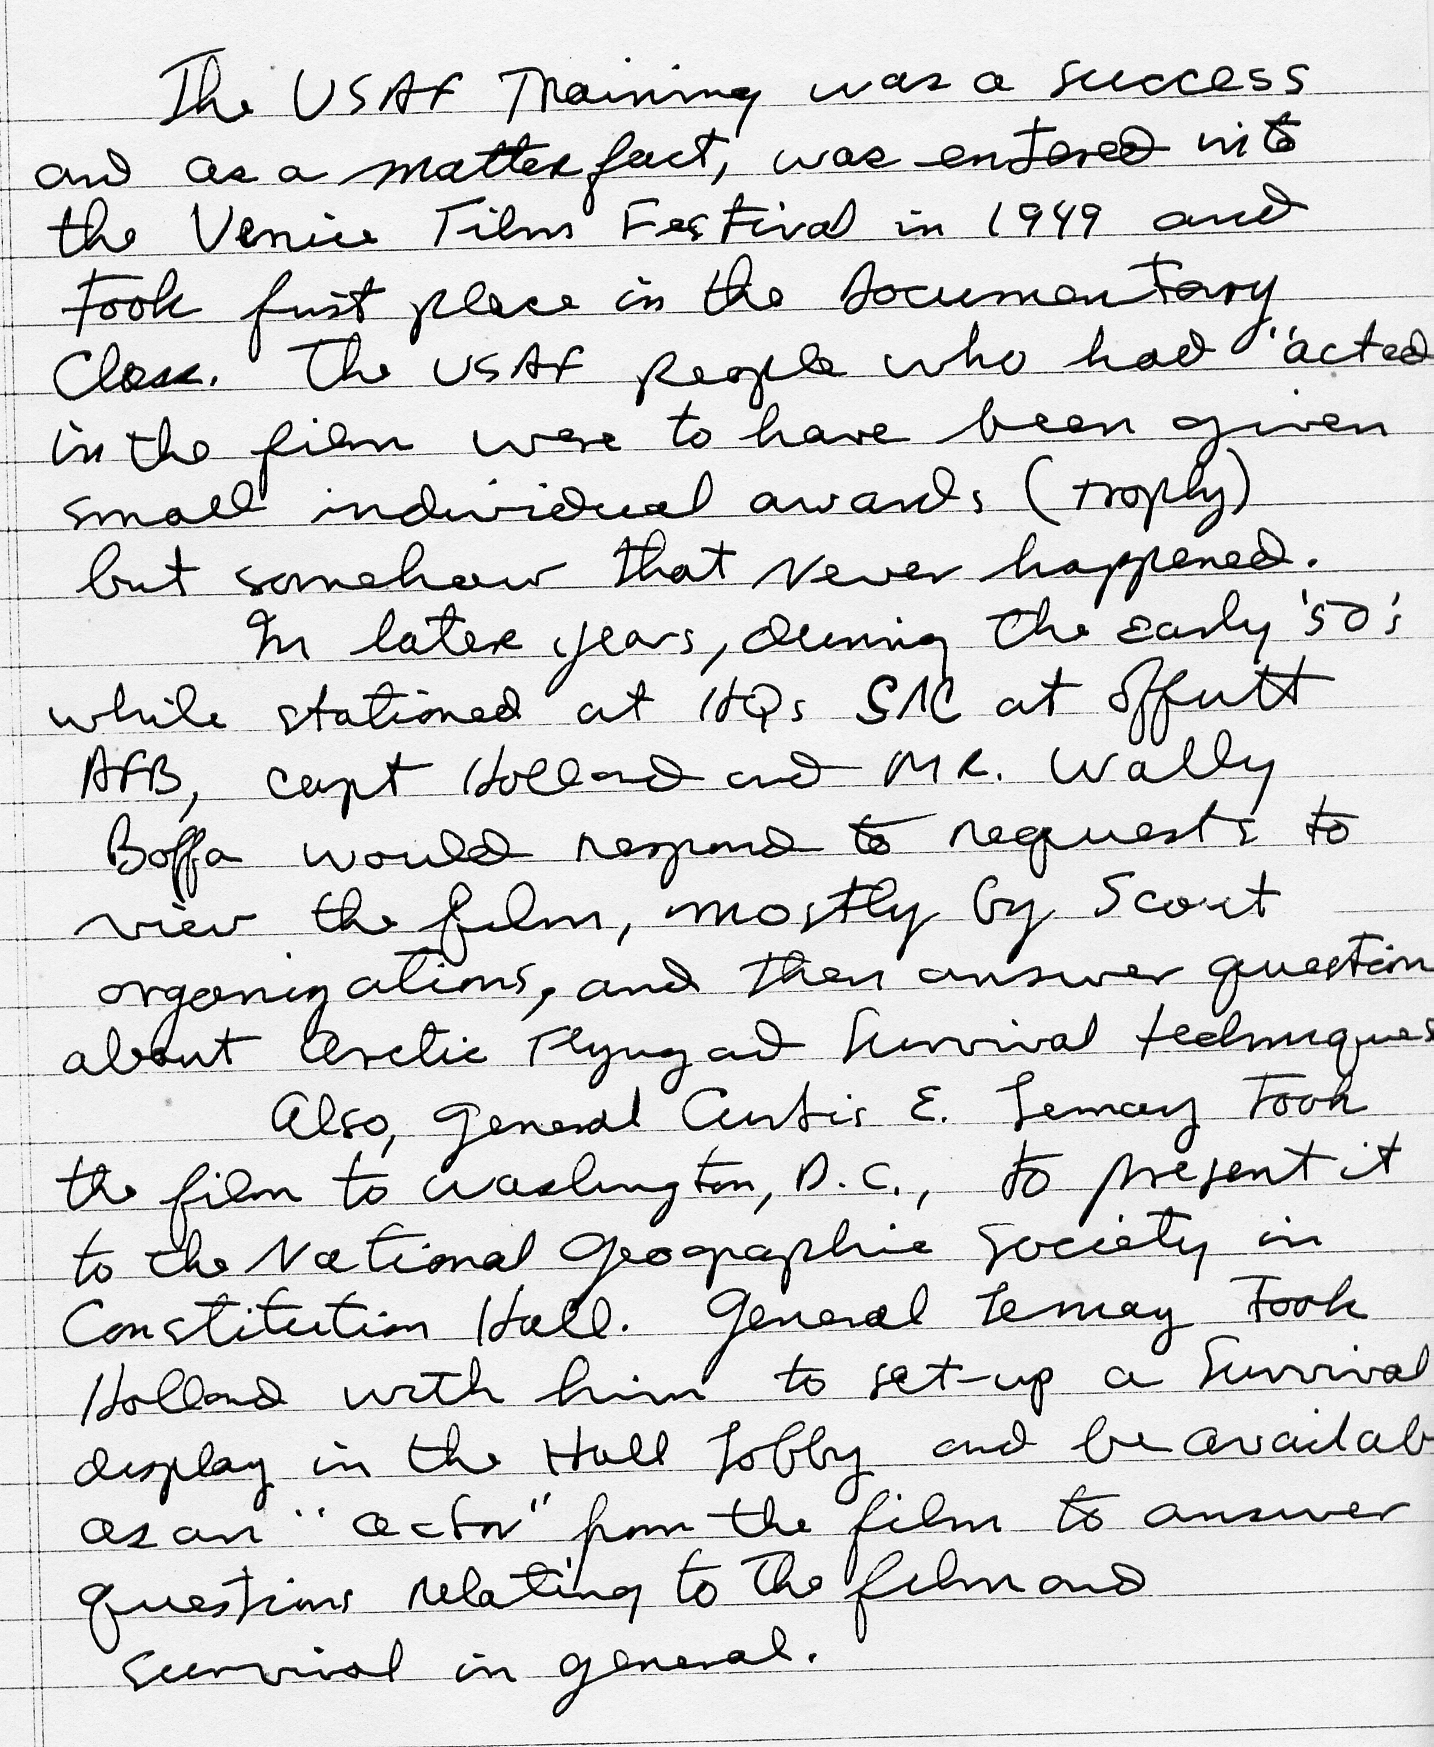 The USAF Training was a success
and as a matter fact, was entered into
the Venice Film Festival in 1949 and
took first place in the documentary
Class. The USAF people who had "acted
in the film were to have been given
small individual awards (trophy)
but somehow that never happened.
In later years, during the early '50's
while stationed at HQs SAC at Offutt
AFB, Capt Holland and MR. Wally
Boffa would respond to requests to
view the film, mostly by Scout
organizations, and then answer question
about Arctic Flying ad Survival techniques
Also, General Curtis E. Lemay Took
the film to Washington, D.C., to present it
to the National Geographic Society in
Constitution Hall. General Lemay Took
Holland with him to set-up a Survival
display in the Hall Lobby and be availab
as an "actor" from the film to answer
questions relating to the film and
survival in general.